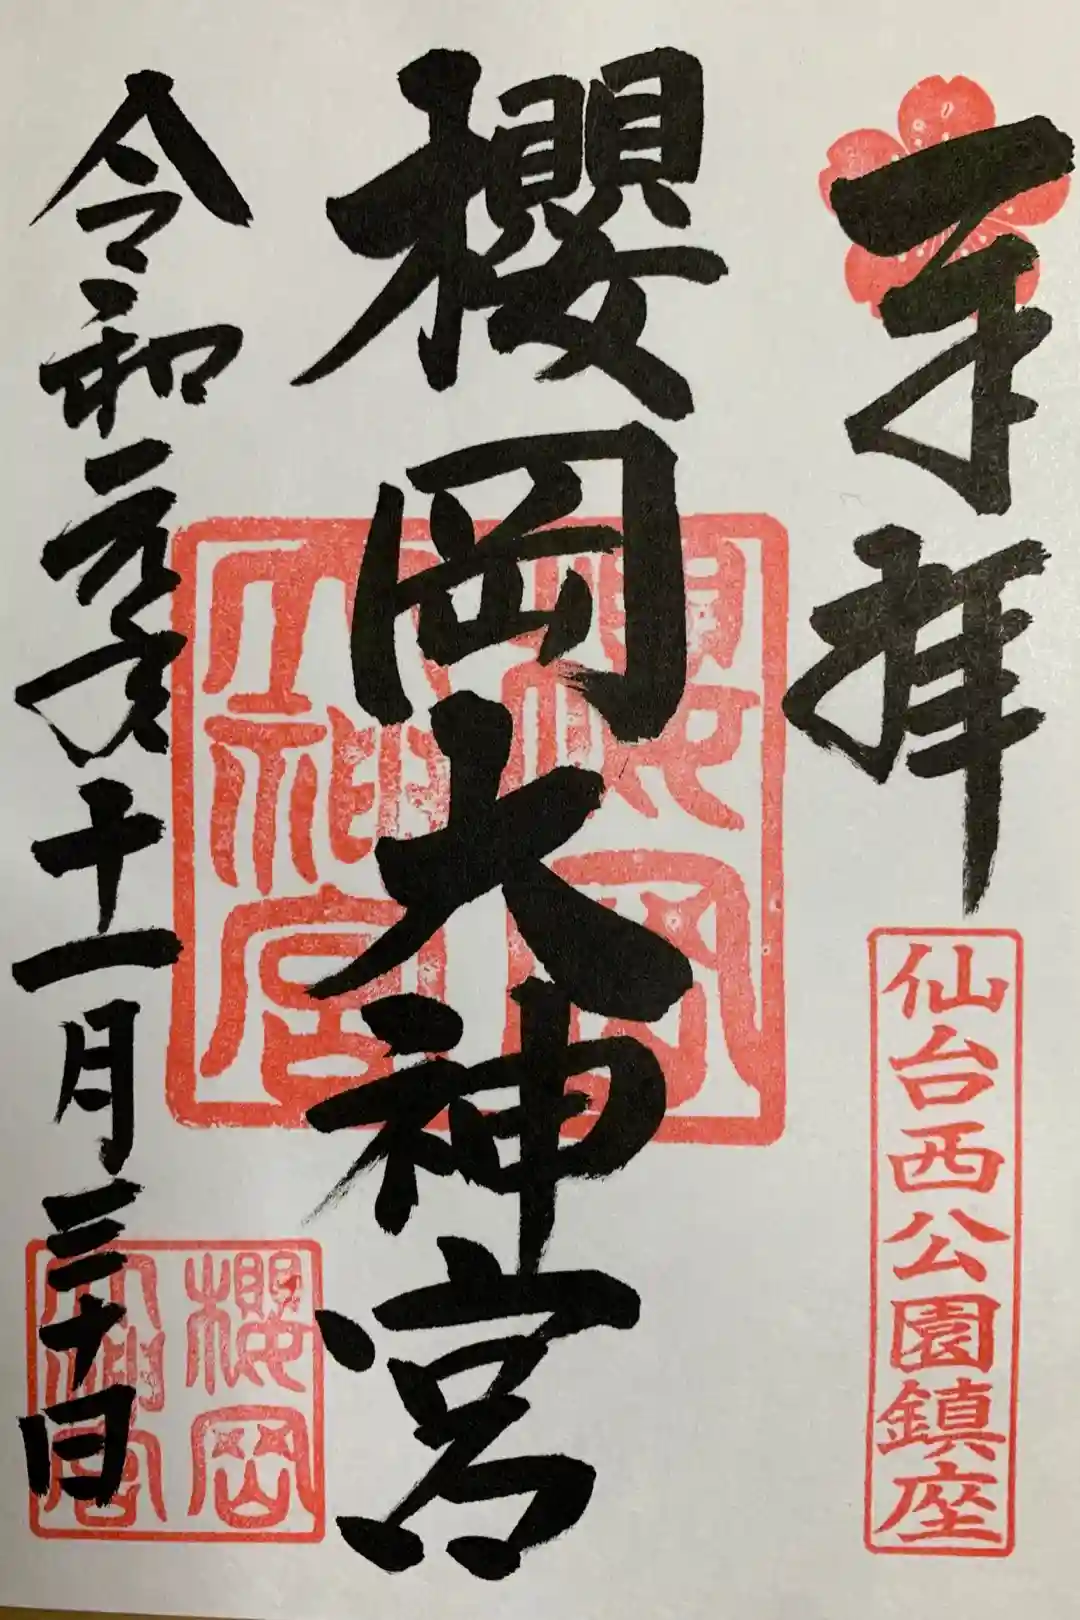 奉拝
仙台西公園鎮座
櫻岡大神宮
櫻岡
大神宮
令和元年十一月三十日
櫻岡
大神宮